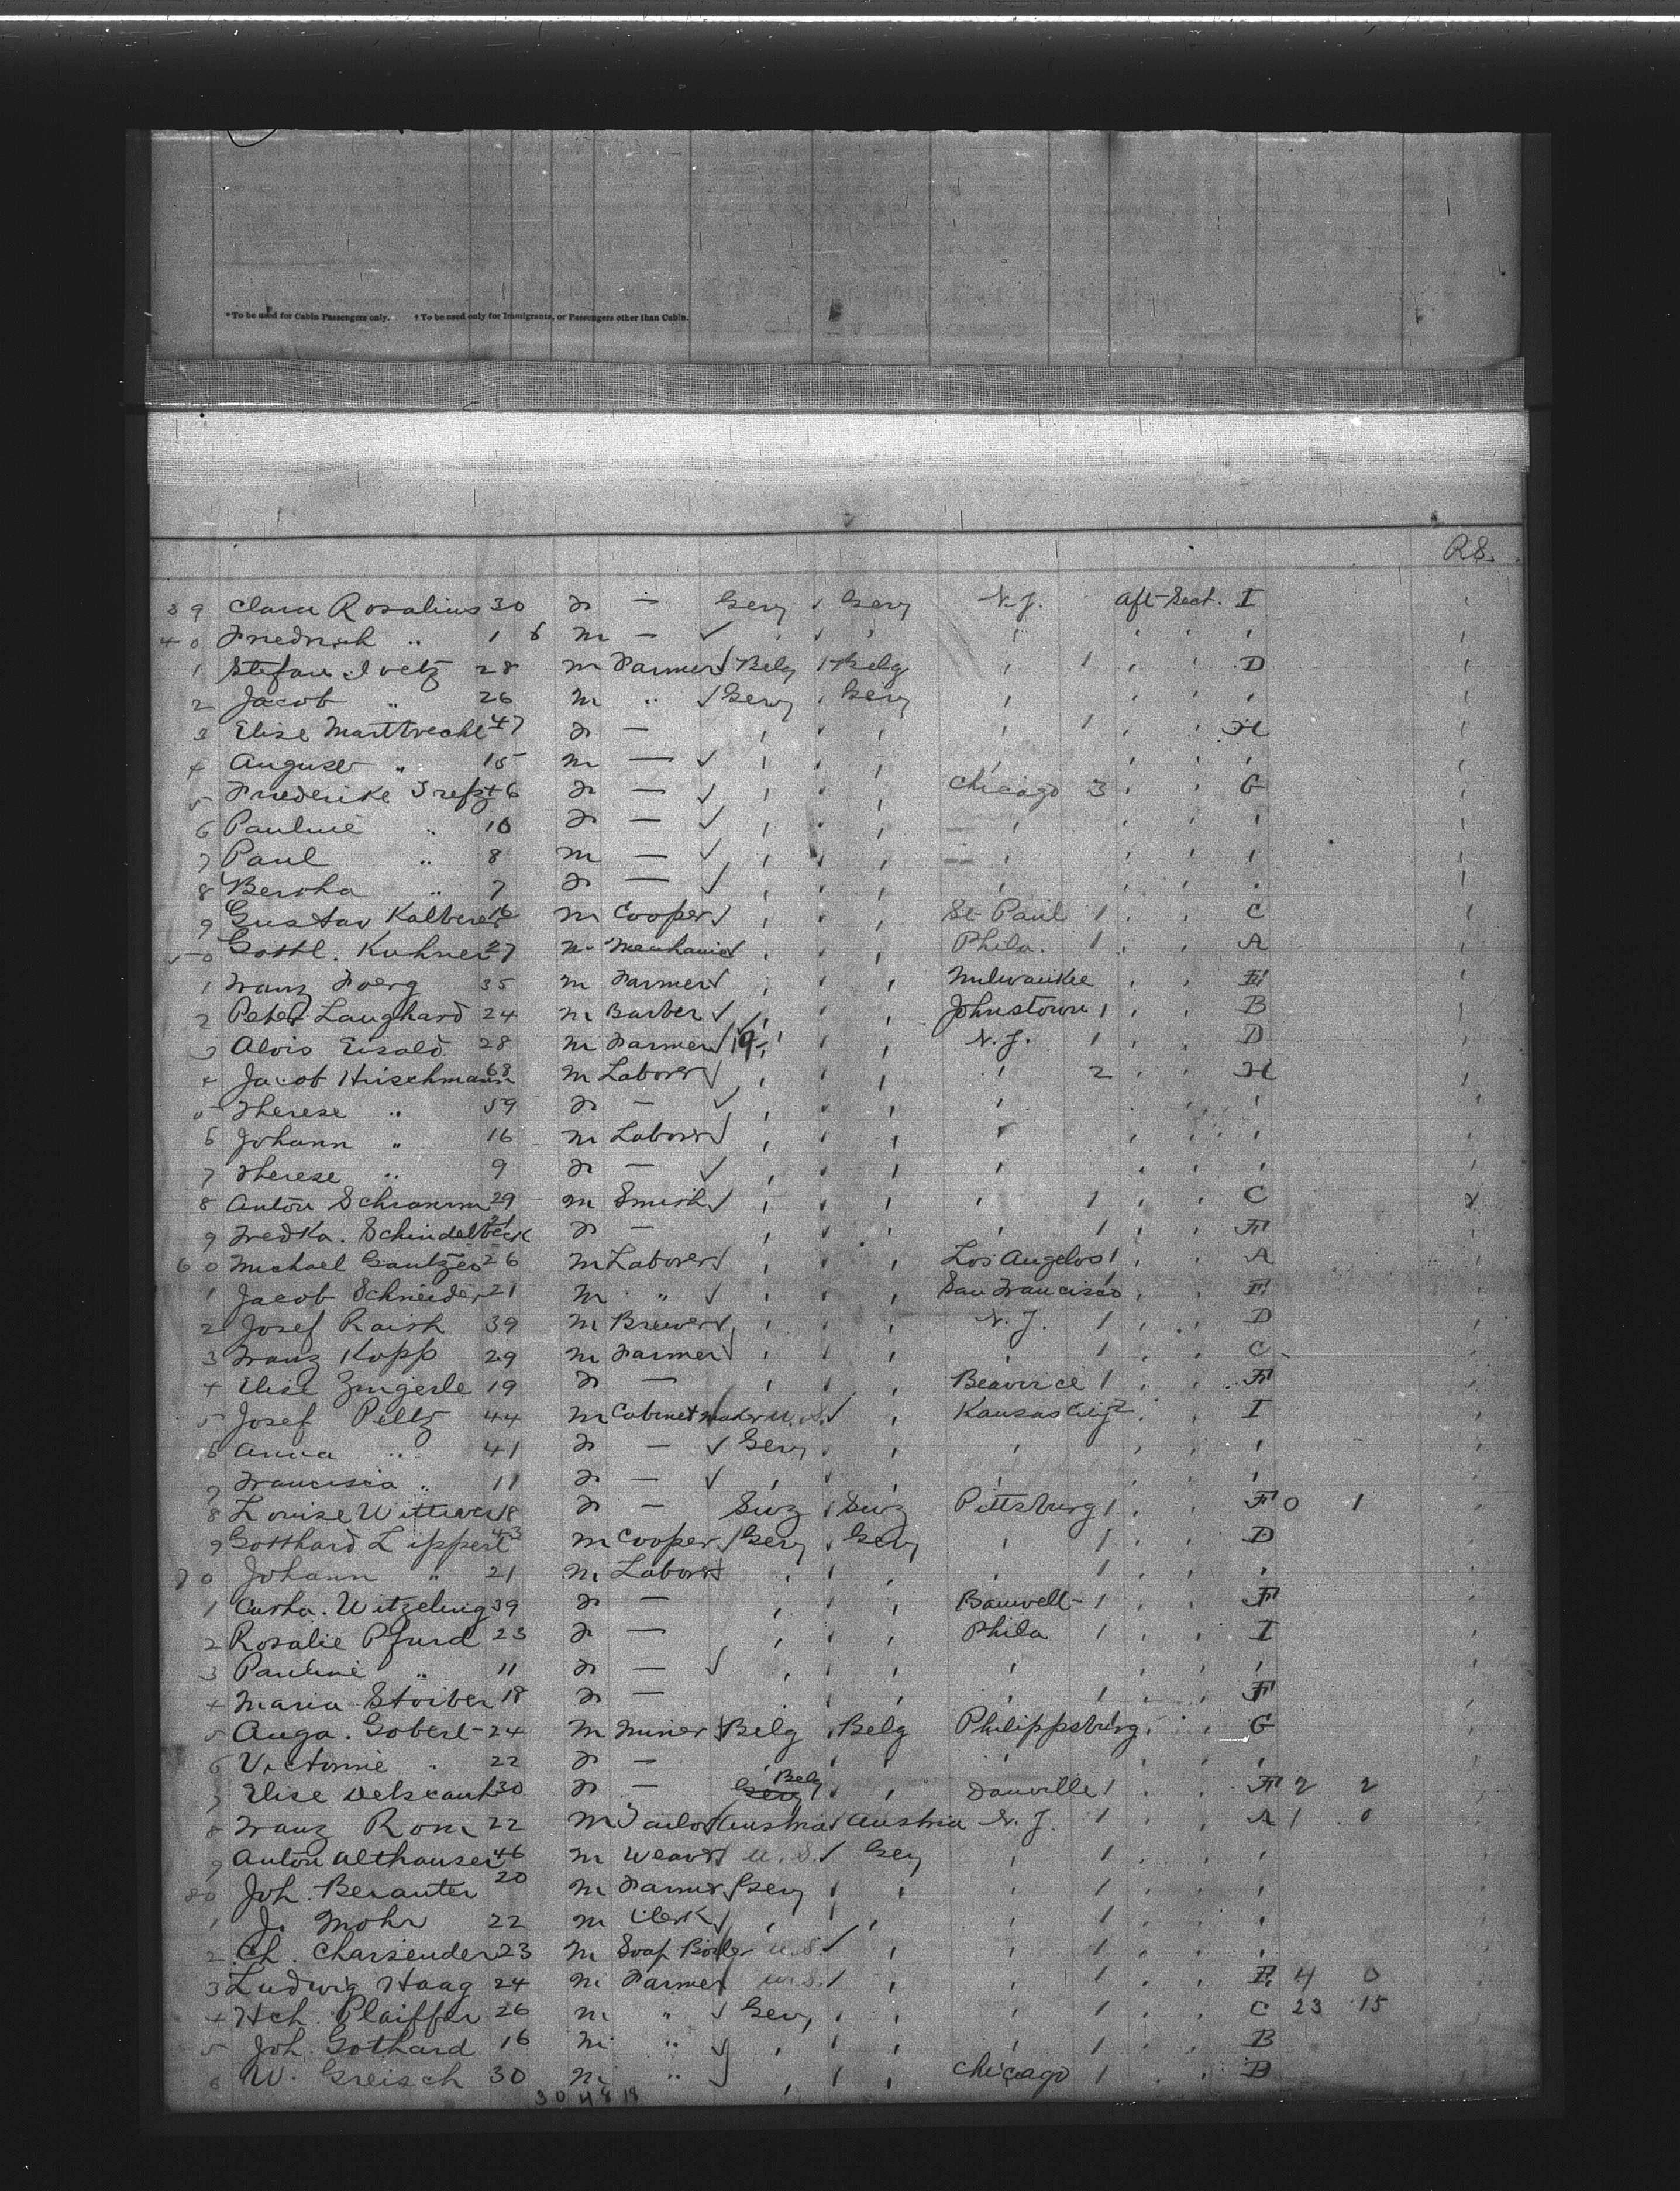 *To be used for Cabin Passengers only. †To be used only for Immigrants, or Passengers other than Cabin.
R8.
39 Clara Rosalius 30 F — Gery Gery N.J. aft-Sect. I
40 Friedrich " 1 6 M —
1 Stefan 28 M Farmer Belg Belg 1 D
2 Jacob " 26 M " Gery Gery
3 Elise 47 F — 1 H
4 August " 15 M —
5 Friederike 46 F — Chicago 3 G
6 Pauline " 10 F —
7 Paul " 8 M —
8 Bertha " 7 F —
9 Gustav Kalberer 16 M Cooper St Paul 1 C
50 Gottl. Kuhner 27 M Mechanic Phila. 1 A
1 Franz Foerg 35 M Farmer Milwaukee
2 Peter Laughard 24 M Barber Johnstown 1 B
3 Alois Eisald 28 M Farmer 19 N.J. 1 D
4 Jacob Hirschmann 68 M Laborer 2 H
5 Therese " 59 F —
6 Johann " 16 M Laborer
7 Therese " 9 F —
8 Anton Schramm 29 M Smith 1 C
9 Fredka. Schindelbeck 21 F — 1 F
60 Michael 26 M Laborer Los Angelos 1 A
1 Jacob Schneider 21 M " San Francisco 1 E
2 Josef Raish 39 M Brewer N.J. 1 D
3 Franz Kopp 29 M Farmer 1 C
4 Elise Zingerle 19 F — Beatrice 1 F
5 Josef Peltz 44 M Cabinet maker U.S. Kansas City 2 I
6 Anna " 41 F — Gery
7 Francisca " 11 F —
8 Louise Wittwer 18 F — Swz Swz Pittsburg 1 F 0 1
9 Gotthard Lippert 43 M Cooper Gery Gery 1 D
70 Johann " 21 M Laborer 1
1 Witzeling 39 F — 1 F
2 Rosalie Pfurd 23 F — Phila 1 I
3 Pauline " 11 F —
4 Maria Stoiber 18 F — 1 F
5 Auga. Gobert 24 M Miner Belg Belg Philippsburg G
6 Victorine " 22 F —
7 Elise 30 F — Gery Belg Danville 1 F 2 2
8 Franz Rom 22 M Tailor Austria Austria N.J. 1 A 1 0
9 Anton Althauser 46 M Weaver U.S. Gery 1
80 Joh. Berauter 20 M Farmer Gery 1
1 J. Mohr 22 M Clerk 1
2 Ch. Charsender 23 M Soap Boiler U.S. 1
3 Ludwig Haag 24 M Farmer U.S. 1 E 4 0
4 Hch. Plaiffer 26 M " Gery 1 C 23 15
5 Joh. Gothard 16 M " 1 B
6 W. Greisch 30 M " Chicago 1 D
30 48 18